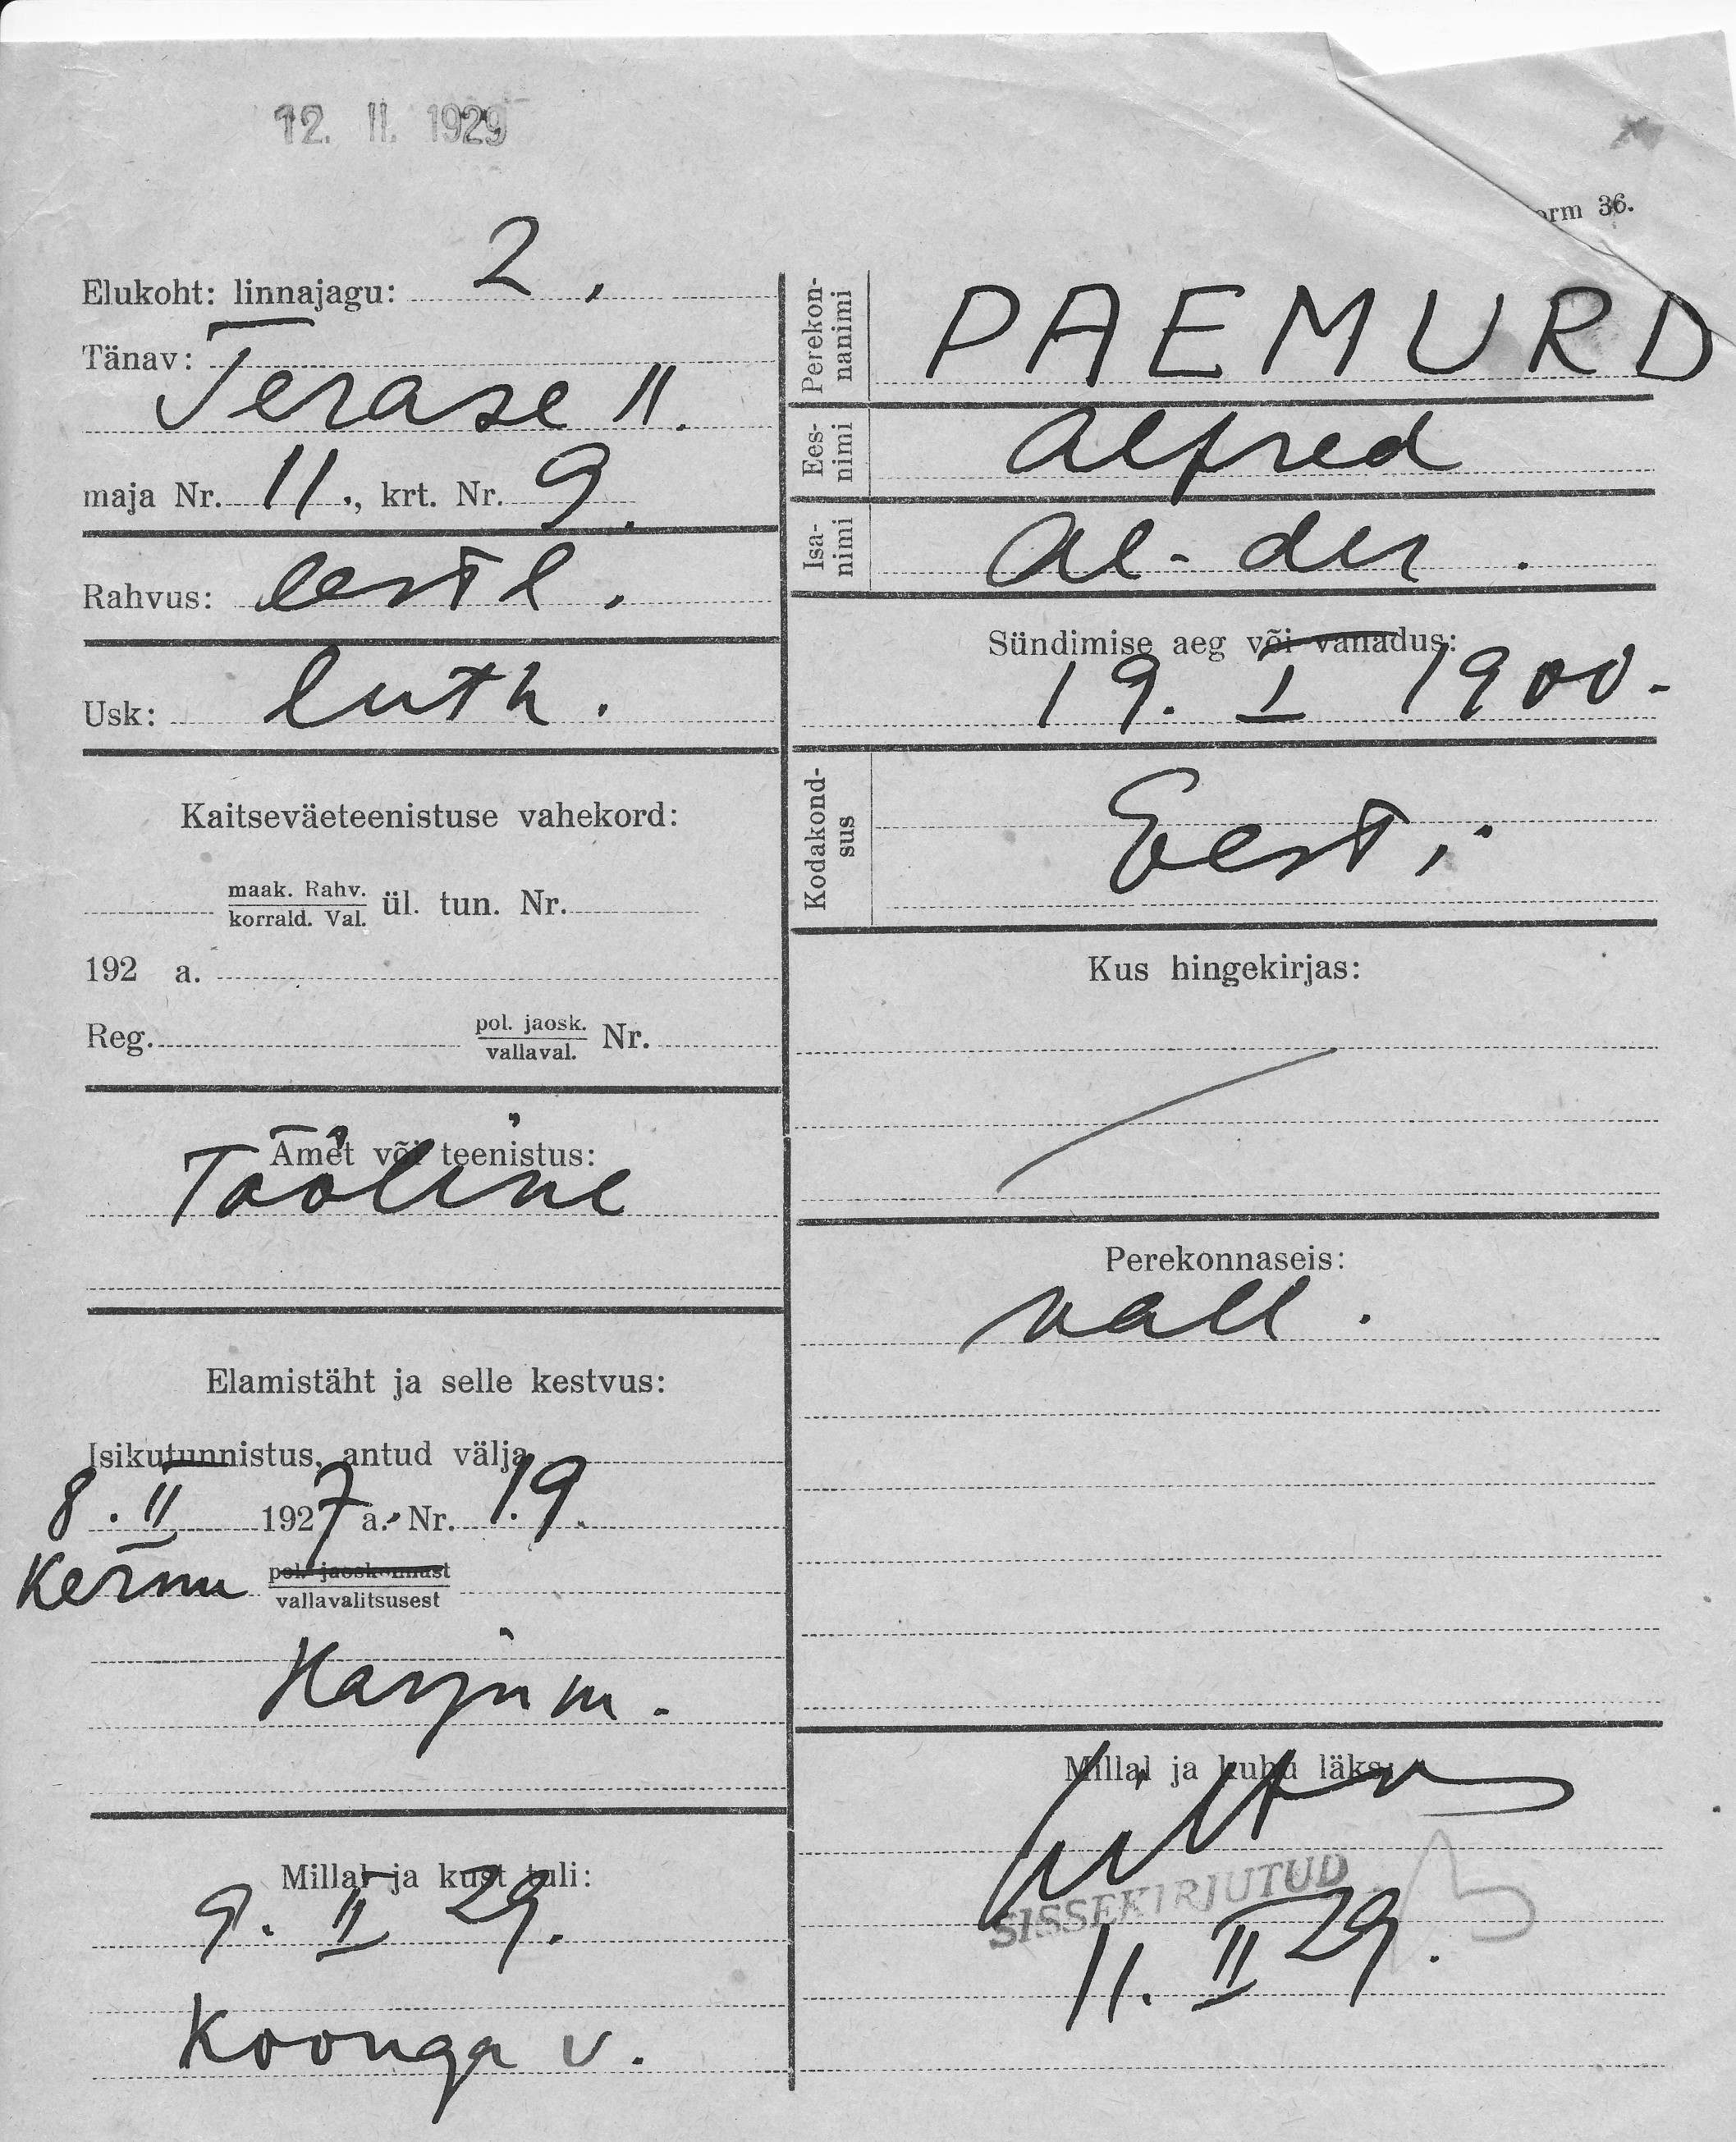 12. II. 1929
orm 36.
Elukoht: linnajagu: 2.
Tänav:
Terase II.
maja Nr. 11., krt. Nr. 9.
Rahvus: eestl.
Usk: luth.
Kaitseväeteenistuse vahekord:
maak. Rahv.
korrald. Val. ül. tun. Nr.
192 a.
Reg. pol. jaosk.
vallaval. Nr.
Amet või teenistus:
Tööline
Elamistäht ja selle kestvus:
Isikutunnistus, antud välja
8. II 1927 a. Nr. 19.
Kernu pol. jaoskonnast
vallavalitsusest
Harjum.
Millal ja kust tuli:
9. II 29.
Koonga v.
Perekon-
nanimi
PAEMURD
Ees-
nimi
Alfred
Isa-
nimi
Al-der.
Sündimise aeg või vanadus:
19. I 1900.
Kodakond-
sus
Eesti
Kus hingekirjas:
Perekonnaseis:
vall.
Millal ja kuhu läks:
SISSEKIRJUTUD
11. II 29.